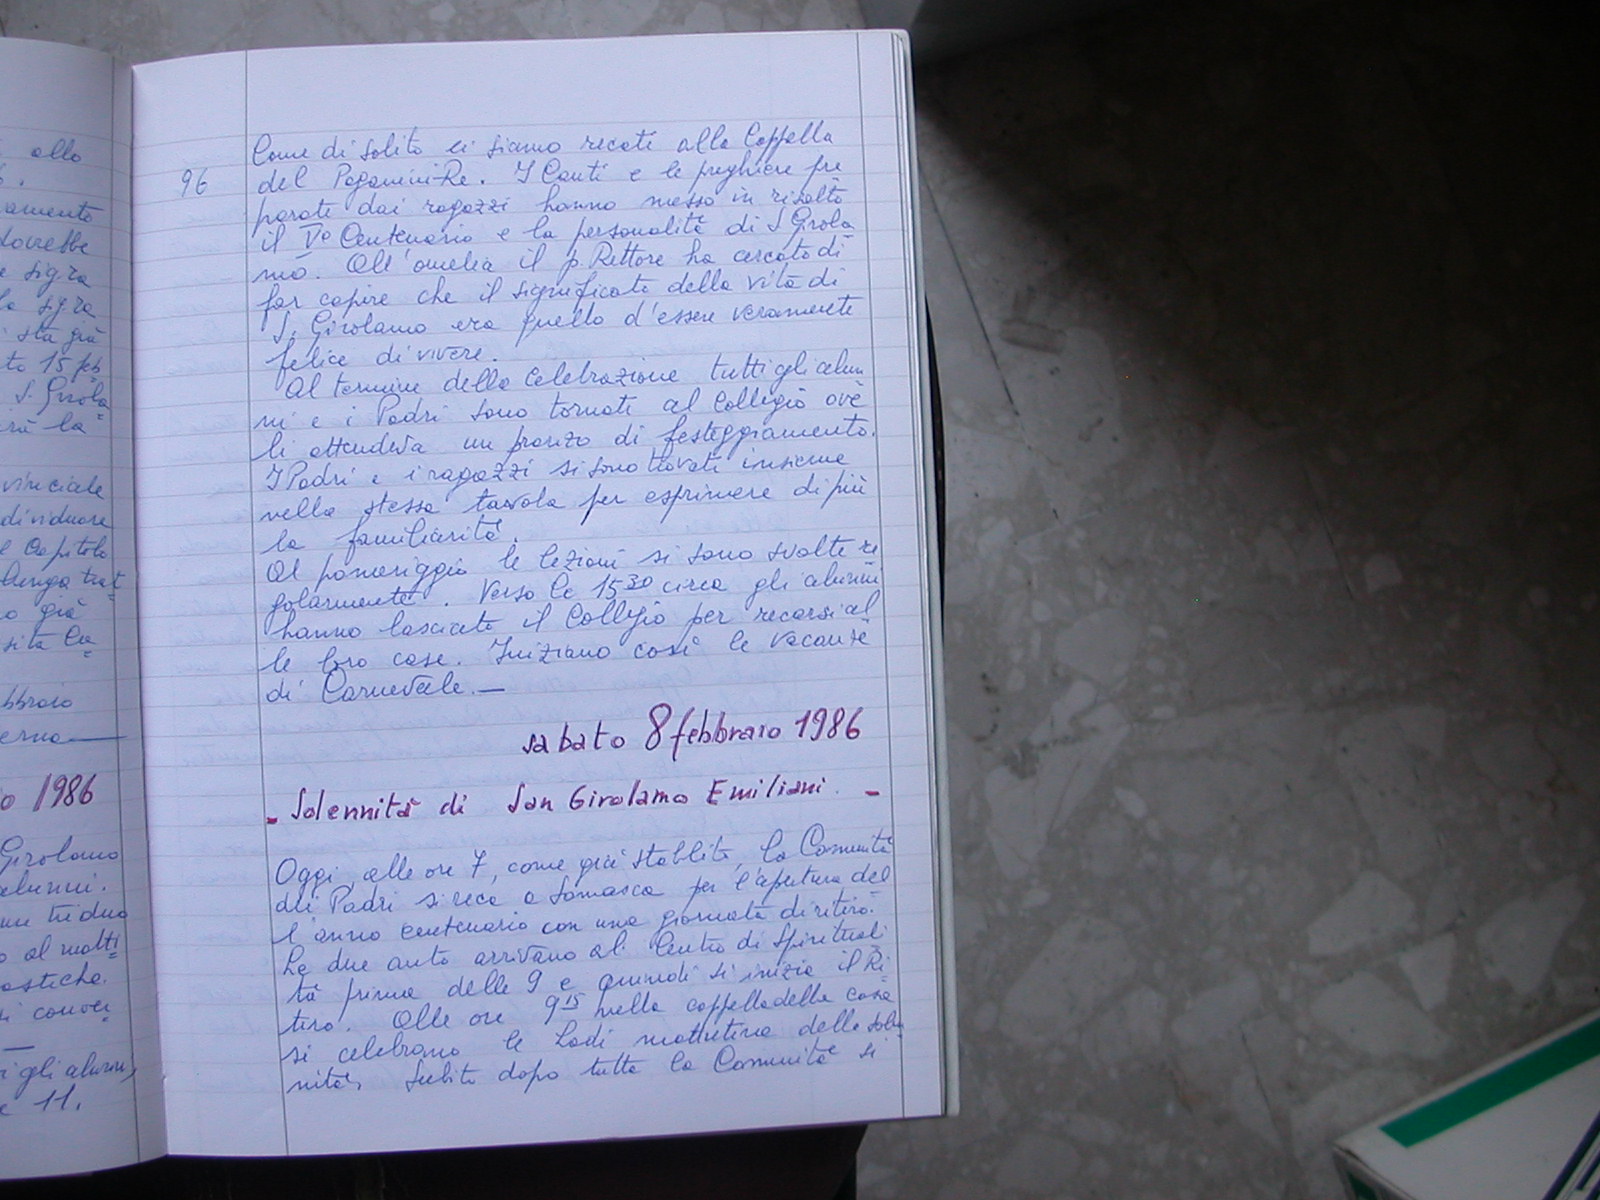 allo
amento
dovrebbe
e sig.ra
la sig.ra
sta già
to 15 feb
S. Girola=
rà la
vinciale
dividuare
l Capitolo
lunga trat=
o già
sita Ca=
bbraio
erna
o 1986
Girolamo
alunni.
un triduo
o al matti=
astiche.
si conver=
i gli alunni,
e 11.
96
Come di solito ci siamo recati alla Cappella
del Paganini-Re. I Canti e le preghiere pre
parate dai ragazzi hanno messo in risalto
il V° Centenario e la personalità di S Girola
mo. All'omelia il p. Rettore ha cercato di
far capire che il significato della vita di
S. Girolamo era quello d'essere veramente
felice di vivere.
Al termine della celebrazione tutti gli alun
ni e i Padri sono tornati al Collegio ove
li attendeva un pranzo di festeggiamento.
I Padri e i ragazzi si sono trovati insieme
nella stessa tavola per esprimere di più
la familiarità.
Al pomeriggio le lezioni si sono svolte re
golarmente. Verso le 15³⁰ circa gli alunni
hanno lasciato il Collegio per recarsi al
le loro case. Iniziano così le vacanze
di Carnevale.—
sabato 8 febbraio 1986
- Solennità di San Girolamo Emiliani. -
Oggi, alle ore 7, come già stabilito, la Comunità
dei Padri si reca a Somasca per l'apertura del
l'anno centenario con una giornata di ritiro.
Le due auto arrivano al Centro di Spirituali
tà prima delle 9 e quindi si inizia il Ri=
tiro. Alle ore 9¹⁵ nella cappella della casa
si celebrano le Lodi mattutine della solen
nità. Subito dopo tutta la Comunità si